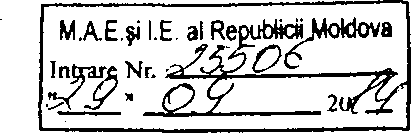 M.A.E.și I.E. al Republicii Moldova
Intrare Nr. 25506
"29" 09 2014